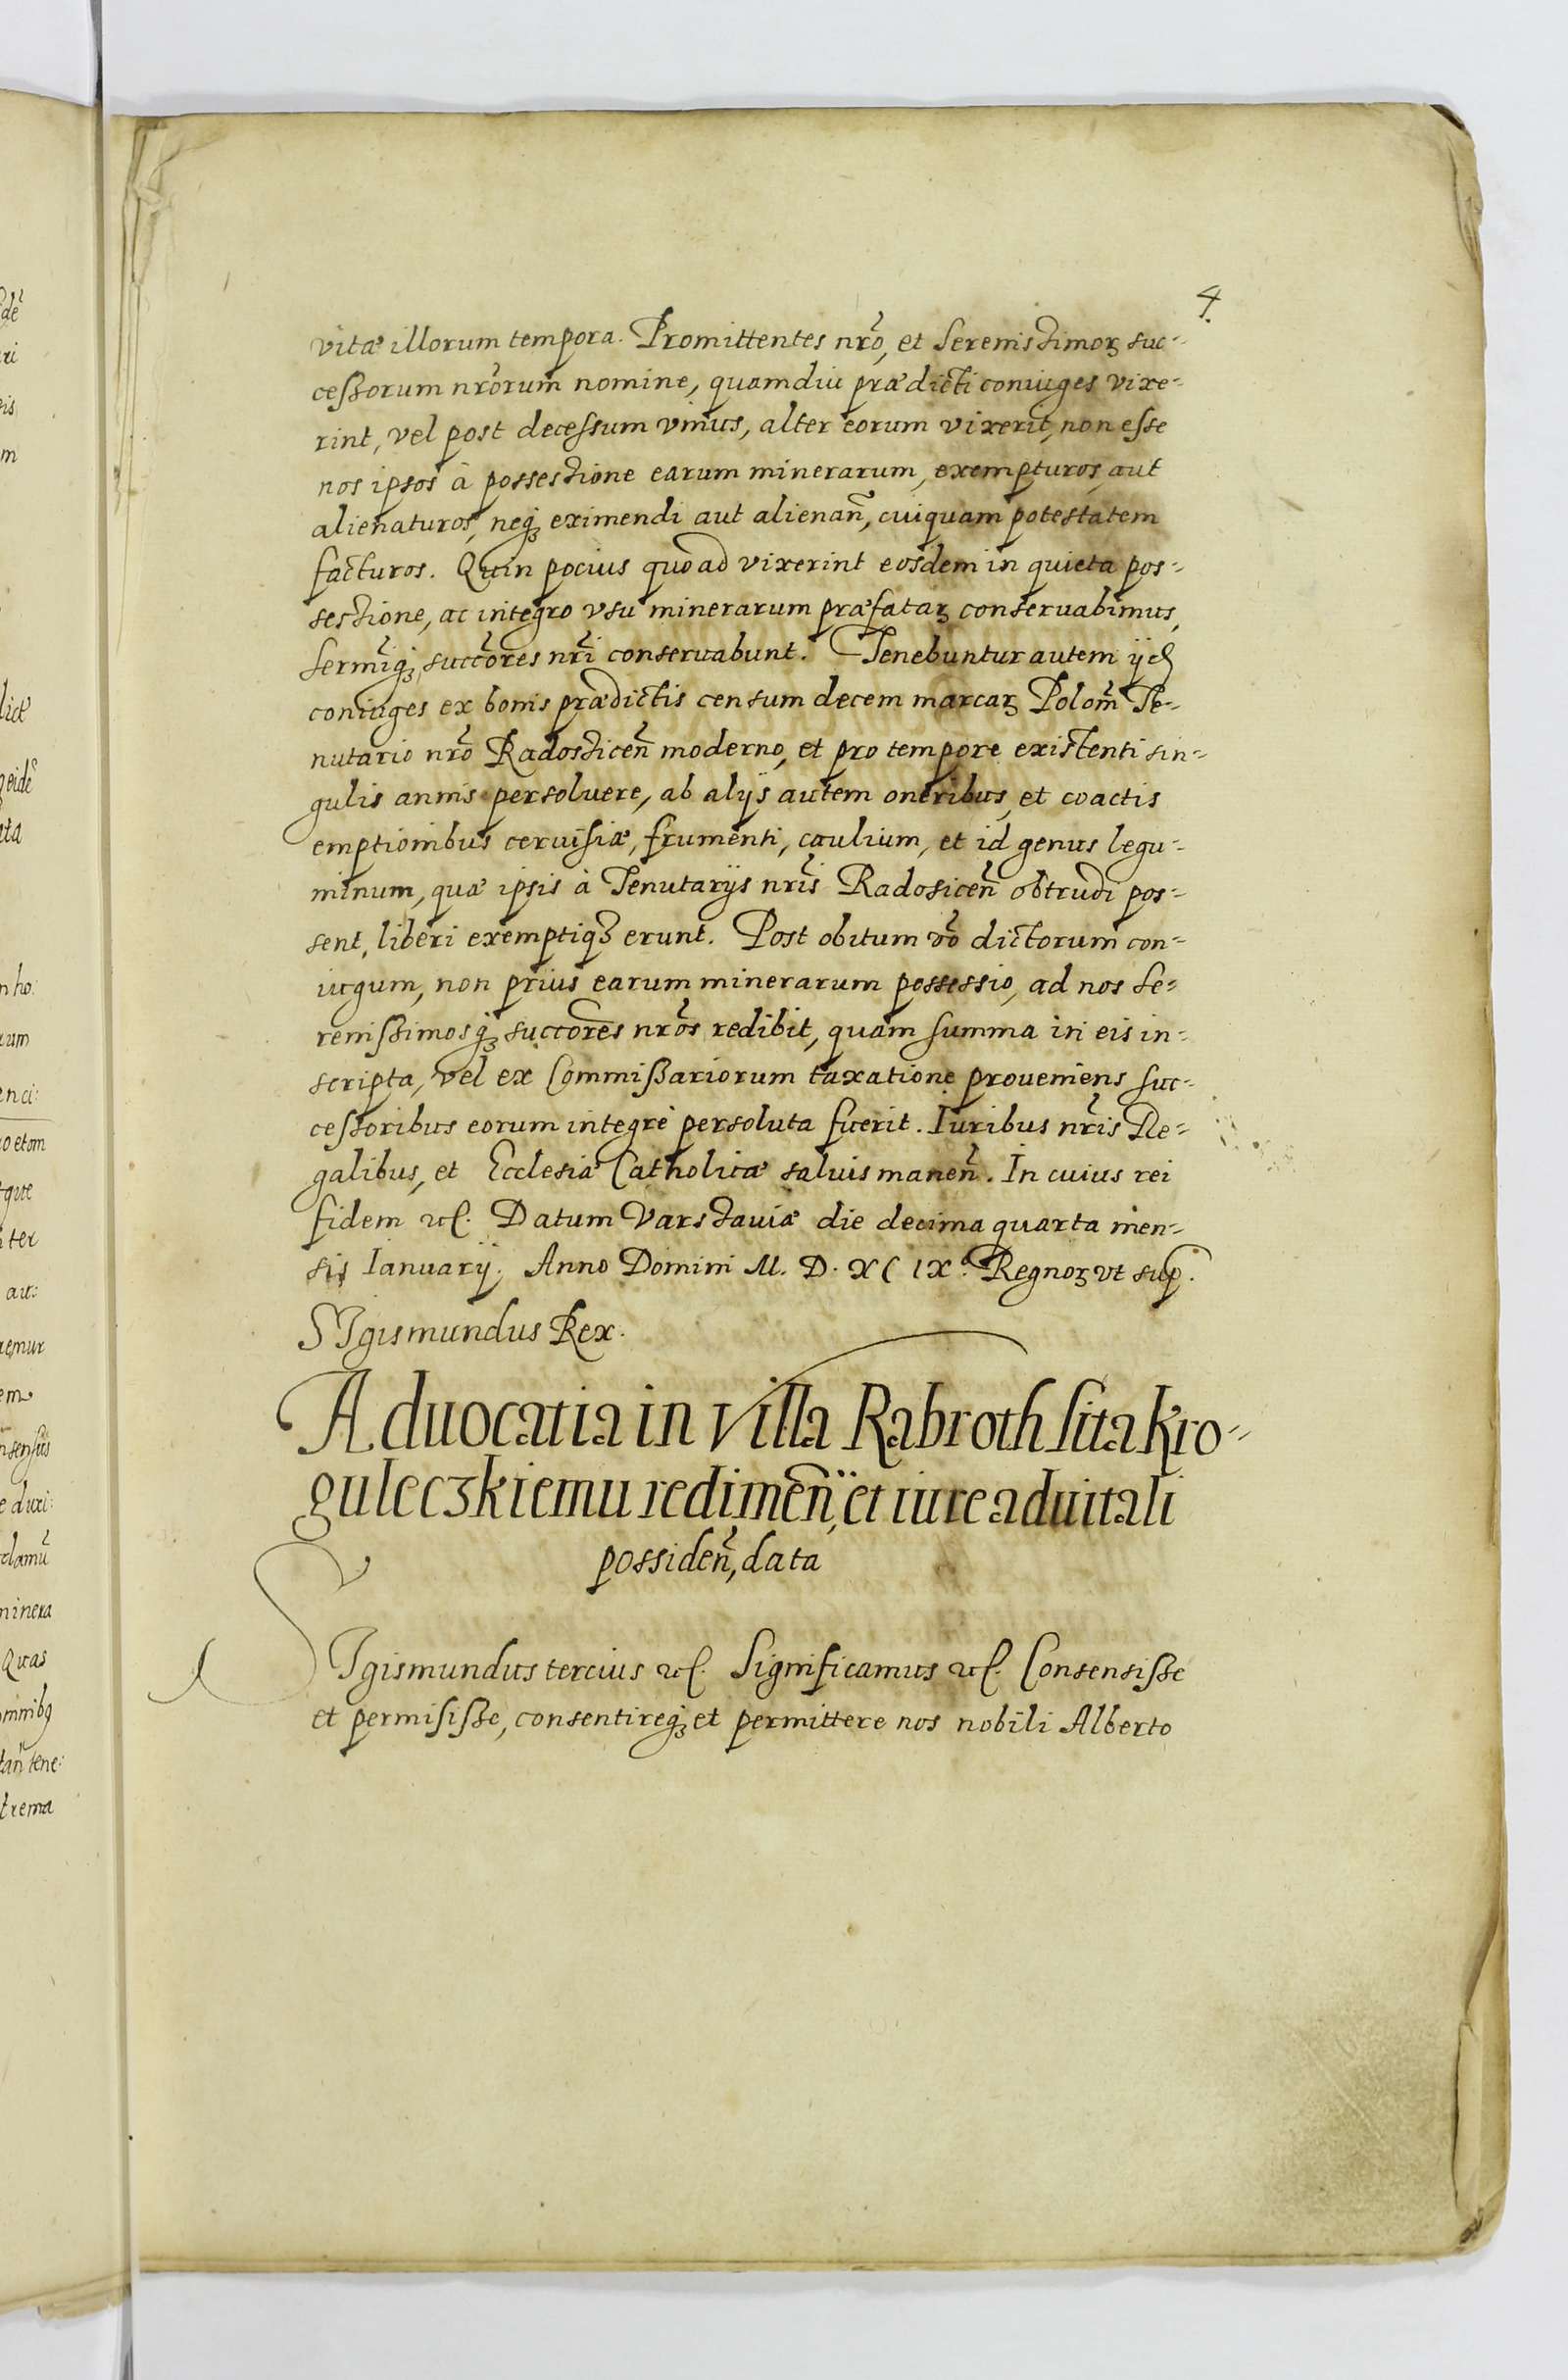 4.
vitæ illorum tempora. Promittentes nr̃o, et Serenissimoꝝ suc-
cessorum nr̃orum nomine, quamdiu prædicti coniuges vixe-
rint, vel post decessum vnius, alter eorum vixerit, non esse
nos ipsos à possessione earum minerarum, exempturos, aut
alienaturos, neqꝫ eximendi aut alienañ, cuiquam potestatem
facturos. Quin pocius quoad vixerint eosdem in quieta pos-
sessione, ac integro vsu minerarum præfataꝝ conseruabimus,
Serm̃iqꝫ succõres nr̃i conseruabunt. Tenebuntur autem ijd
coniuges ex bonis prædictis censum decem marcaꝝ Polom̃ Te-
nutario nr̃o Radossiceñ moderno, et pro tempore existenti sin-
gulis annis persoluere, ab alijs autem oneribus, et coactis
emptionibus ceruisiæ, frumenti, caulium, et id genus legu-
minum, quæ ipsis à Tenutarijs nr̃is Radosiceñ obtrudi pos-
sent, liberi exemptiqꝫ erunt. Post obitum võ dictorum con-
iugum, non prius earum minerarum possessio, ad nos Se-
renissimosqꝫ succõres nr̃os redibit, quam summa in eis in-
scripta, vel ex Commissariorum taxatione proueniens suc-
cessoribus eorum integrè persoluta fuerit. Iuribus nr̃is Re-
galibus, et Ecclesiæ Catholicæ saluis maneñ. In cuius rei
fidem etc. Datum Varssauiæ die decima quarta men-
sis Ianuarij. Anno Domini M. D. XC IXº. Regnoꝝ vt sup.
SIgismundus Rex.
Aduocatia in villa Rabroth sita Kro-
guleczkiemu redimeñ, et iure aduitali
possideñ, data
SIgismundus tercius etc. Significamus etc. Consensisse
et permisisse, consentireqꝫ et permittere nos nobili Alberto